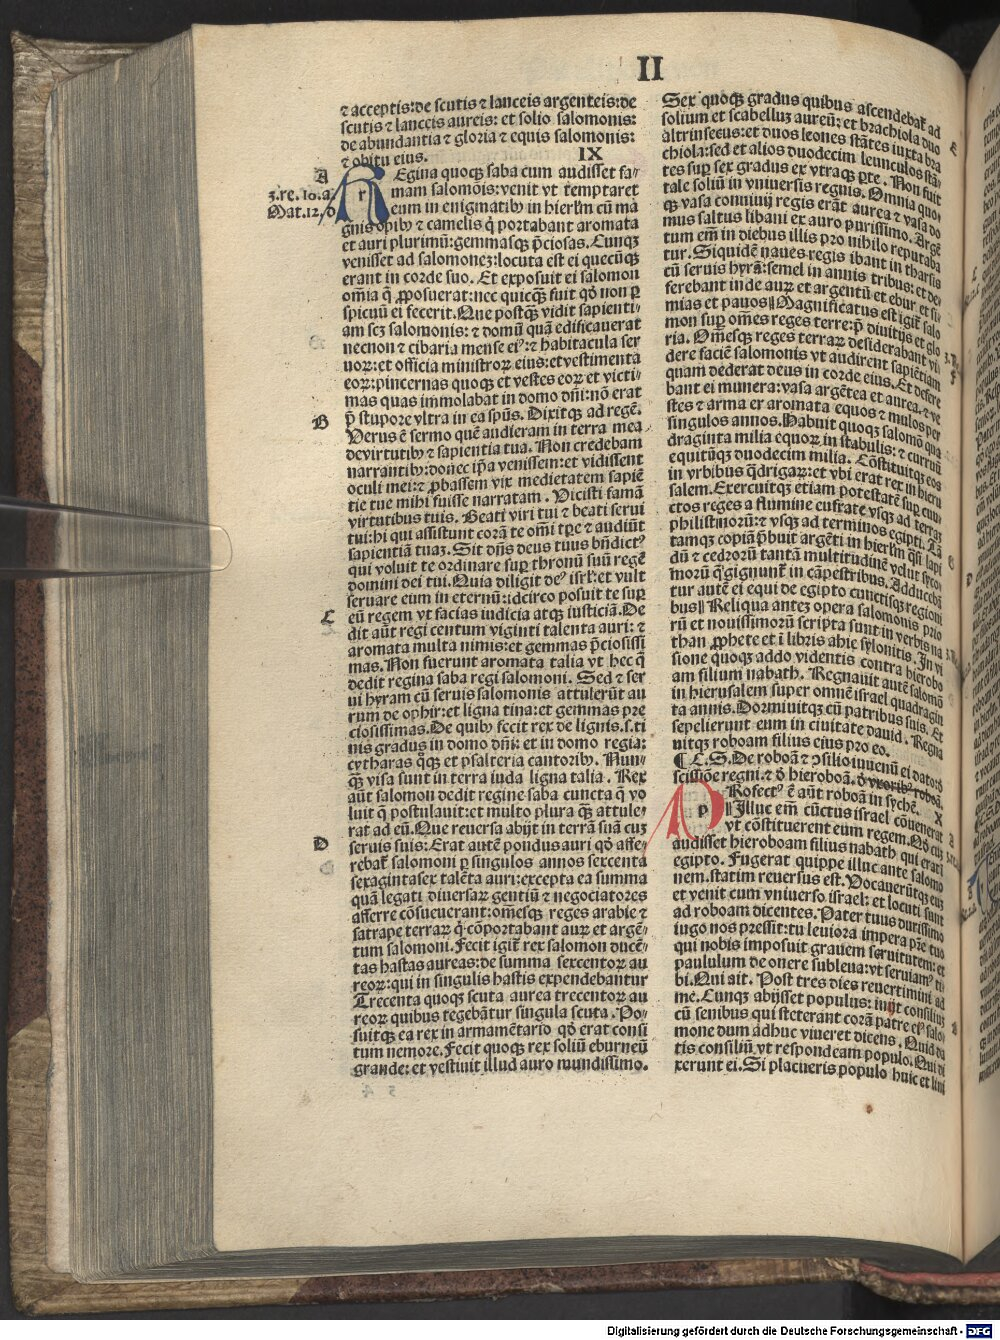 II
⁊ acceptis:de scutis ⁊ lanceis argenteis:de
scutis ⁊ lanceis aureis: et solio salomonis:
de abundantia ⁊ gloria ⁊ equis salomonis:
⁊ obitu eius. IX
A
3.re.10.a.
Mat.12.d
REgina quoqꝫ saba cum audisset fa-
mam salomōis:venit vt temptaret
eum in enigmatibꝰ in hierlm̄ cū ma
gnis opibꝰ ⁊ camelis q̄ portabant aromata
et auri plurimū:gemmasqꝫ p̄ciosas. Cunqꝫ
venisset ad salomoneꝫ:locuta est ei quecūqꝫ
erant in corde suo. Et exposuit ei salomon
om̄ia q̄ ꝓposuerat:nec quicqꝫ̄ fuit qḋ non ꝑ
spicuū ei fecerit. Que postqꝫ̄ vidit sapienti-
am scꝫ salomonis: ⁊ domū quā edificauerat
necnon ⁊ cibaria mense eiꝰ: ⁊ habitacula ser
uoꝝ: et officia ministroꝝ eius: et vestimenta
eoꝝ: pincernas quoqꝫ et vestes eoꝝ et victi-
mas quas immolabat in domo dn̄i: nō erat
B
p̄ stupore vltra in ea spūs. Dixitqꝫ ad regē.
Verus ē sermo quē audieram in terra mea
de virtutibꝰ ⁊ sapientia tua. Non credebam
narrantibꝰ: donec ip̄a venissem: et vidissent
oculi mei: ⁊ ꝓbassem vix medietatem sapiē
tie tue mihi fuisse narratam. Vicisti famā
virtutibus tuis. Beati viri tui ⁊ beati serui
tui: hi qui assistunt corā te om̄i tꝑe ⁊ audiūt
sapientiā tuaꝫ. Sit dn̄s deus tuus bn̄dictꝰ
qui voluit te ordinare suꝑ thronū suū regē
domini dei tui. Quia diligit deꝰ isrl̄: et vult
seruare eum in eternū: idcirco posuit te suꝑ
C
eū regem vt facias iudicia atqꝫ iusticiā. De
dit aūt regi centum viginti talenta auri: ⁊
aromata multa nimis: et gemmas p̄ciosissi
mas. Non fuerunt aromata talia vt hec q̄
dedit regina saba regi salomoni. Sed ⁊ ser
ui hyram cū seruis salomonis attulerūt au
rum de ophir: et ligna tina: et gemmas pre
ciosissimas. De quibꝰ fecit rex de lignis.s.ti
nis gradus in domo dn̄i: et in domo regia:
cytharas q̄qꝫ et psalteria cantoribꝰ. Nun-
qꝫ̄ visa sunt in terra iuda ligna talia. Rex
aūt salomon dedit regine saba cuncta q̄ vo
luit q̄ postulauit: et multo plura qꝫ̄ attule-
rat ad eū. Que reuersa abijt in terrā suā cuꝫ
D
seruis suis: Erat autē pondus auri qḋ affe-
rebat̄ salomoni ꝑ singulos annos sexcenta
sexagintasex talēta auri: excepta ea summa
quā legati diuersaꝝ gentiū ⁊ negociatores
afferre cōsueuerant: om̄esqꝫ reges arabie ⁊
satrape terraꝝ q̄ cōportabant auꝝ et argē-
tum salomoni. Fecit igit̄ rex salomon ducē-
tas hastas aureas: de summa sexcentoꝝ au
reoꝝ: qui in singulis hastis expendebantur
Trecenta quoqꝫ scuta aurea trecentoꝝ au
reoꝝ quibus tegebātur singula scuta. Po-
suitqꝫ ea rex in armamētario qḋ erat consi
tum nemore. Fecit quoqꝫ rex soliū eburneū
grande: et vestiuit illud auro mundissimo.
Sex quoqꝫ gradus quibus ascendebat̄ ad
solium et scabelluꝫ aureū: et brachiola duo
altrinsecus: et duos leones stātes iuxta bra
E
chiola: sed et alios duodecim leunculos stā-
tes suꝑ sex gradus ex vtraqꝫ ꝑte. Non fuit
tale soliū in vniuersis regnis. Omnia quo-
qꝫ vasa conuiuij regis erāt aurea ⁊ vasa do
mus saltus libani ex auro purissimo. Argē
tum em̄ in diebus illis pro nihilo reputaba
tur. Siquidē naues regis ibant in tharsis
cū seruis hyrā: semel in annis tribus: et de-
ferebant inde auꝝ et argentū et ebur et si-
mias et pauos. Magnificatus est igit̄ salo
mon suꝑ om̄es reges terre: p̄ diuitijs et glo
ria. Om̄esqꝫ reges terraꝝ desiderabant vi-
dere faciē salomonis vt audirent sapiētiam
quam dederat deus in corde eius. Et defere
bant ei munera: vasa argētea et aurea, ⁊ ve
stes ⁊ arma er aromata equos ⁊ mulos per
singulos annos. Habuit quoqꝫ salomō qua
draginta milia equoꝝ in stabulis: ⁊ curruū
equitūqꝫ duodecim milia. Cōstituitqꝫ eos
in vrbibus q̄drigaꝝ: et vbi erat rex in hieru
salem. Exercuitqꝫ etiam potestatē suꝑ cun-
ctos reges a flumine eufrate vsqꝫ ad terraꝫ
philistinoꝝ: ⁊ vsqꝫ ad terminos egipti. Tā
tamqꝫ copiā p̄buit argēti in hierlm̄ qsi lapi
dū ⁊ cedroꝝ tantā multitudinē velut syco-
moꝝ q̄ gignunt̄ in cāpestribus. Adducebā
tur autē ei equi de egipto cunctisqꝫ regioni
bus. Reliqua anteꝫ opera salomonis prio
rū et nouissimoꝝ scripta sunt in verbis na
than ꝓphete et ī libris ahie sylonitis. In vi
sione quoqꝫ addo videntis contra hierobo
am filium nabath. Regnauit autē salomō
in hierusalem super omnē israel quadragin
ta annis. Dormiuitqꝫ cū patribus suis. Et
sepelierunt eum in ciuitate dauid. Regna
uitqꝫ roboam filius eius pro eo.
¶ C.S. De roboā ⁊ ꝯsilio iuuenū ei dato: ḋ
scissiōe regni. ⁊ ḋ hieroboā. ḋ vxoribꝰ roboā.
PRofectꝰ ē aūt roboā in sychē. X
Illuc em̄ cūctus israel cōuenerat
vt cōstituerent eum regem. Nō cuꝫ
audisset hieroboam filius nabath qui erat ī
egipto. Fugerat quippe illuc ante salomo
nem. statim reuersus est. Vocauerūtqꝫ euꝫ
et venit cum vniuerso israel: et locuti sunt
ad roboam dicentes. Pater tuus durissimo
iugo nos pressit: tu leuiora impera p̄re tuo
qui nobis imposuit grauem seruitutem: et
paululum de onere subleua: vt seruiamꝰ ti-
bi. Qui ait. Post tres dies reuertimini ad
me. Cunqꝫ abijsset populus: inijt consiliuꝫ
cū senibus qui steterant corā patre eiꝰ salo
mone dum adhuc viueret dicens. Quid da
tis consiliū vt respondeam populo. Qui di
xerunt ei. Si placueris populo huic et lini
Digitalisierung gefördert durch die Deutsche Forschungsgemeinschaft - DFG